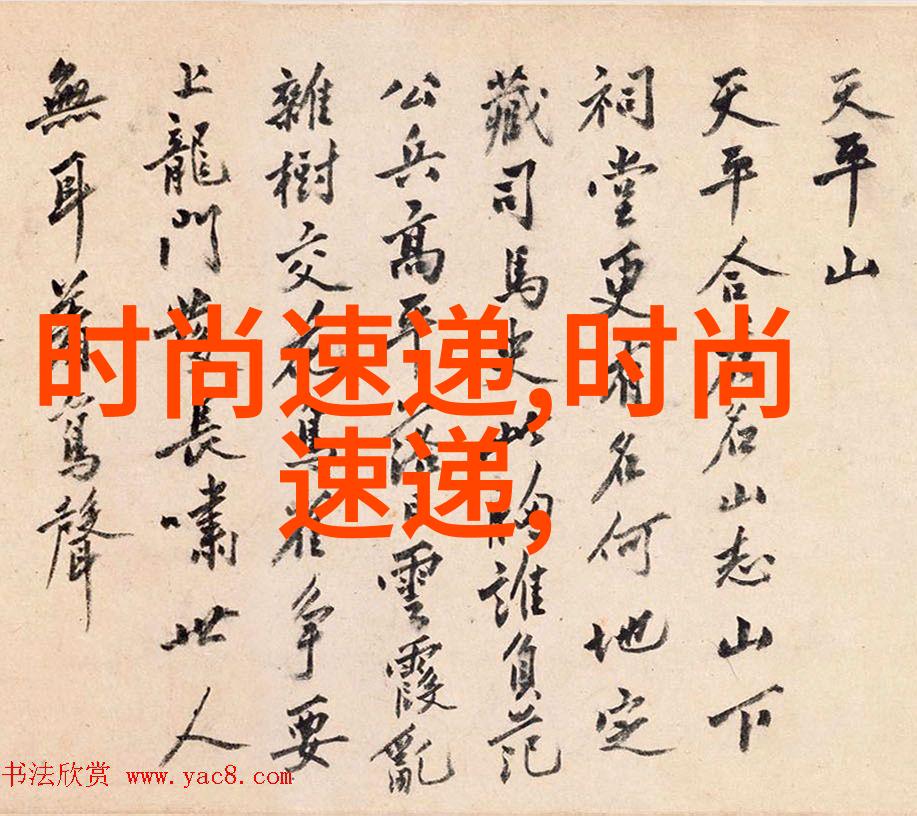 天平山
天平合名山志山下
祠堂更有名何地定
藏司馬史此胸誰負范
公兵高平落日雲霞亂
雜樹交花鳥雀爭要
上龍門發長嘯世人
無耳鸞聲
时尚速递,时尚
速递,
书法欣赏 www.yac8.com